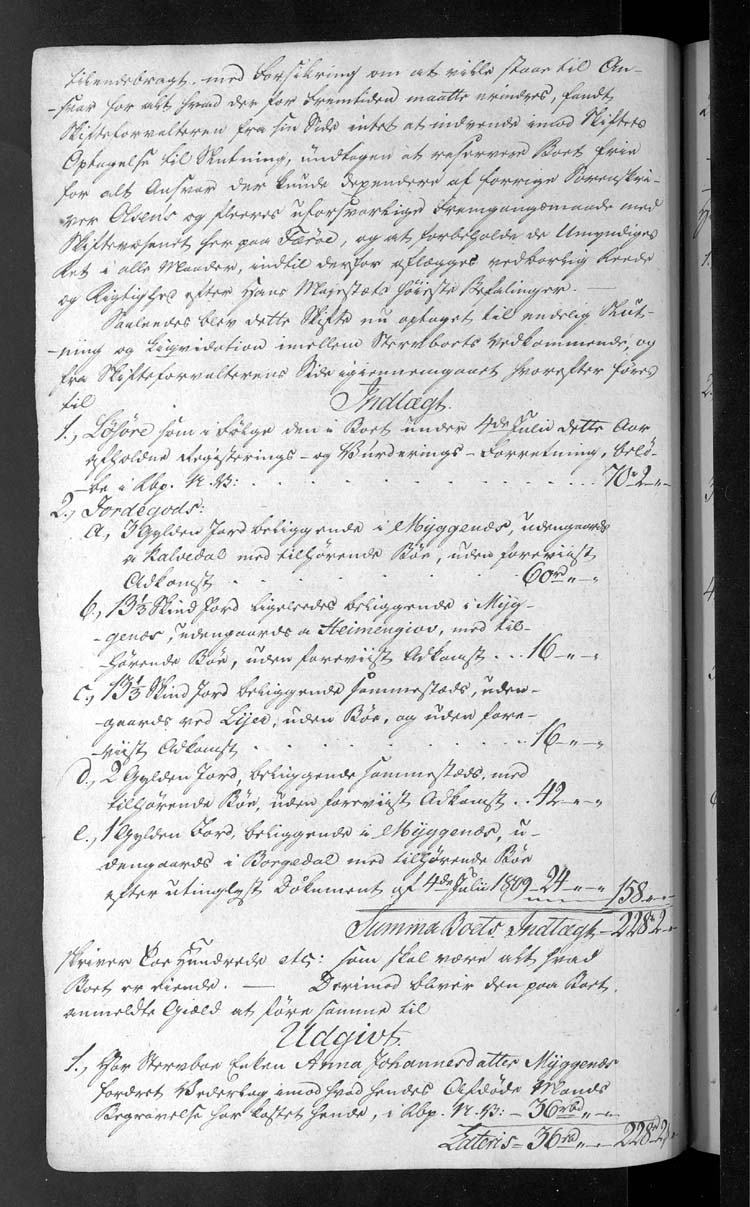 tilendebragt. med Forsikring om at ville staae til An-
-svar for alt hvad der for Fremtiden maatte erindres, fandt
Skifteforvalteren fra sin Side intet at indvende imod Skiftets
Optagelse til Slutning, undtagen at reservere Boet frie
for alt Ansvar der kunde dependere af forrige Sorenskri-
ver Olsens og fleeres uforsvarlige Fremgangsmaade med
Skiftevæsenet her paa Færøe, og at forbeholde de Umyndiges
Ret i alle Maader, indtil derfor aflægges vedbørlig Reede
og Rigtighed efter Hans Majestæts høieste Befalinger. —
Saaledes blev dette Skifte nu optaget til endelig Slut-
-ning og Liqvidation imellem Stervboets Vedkommende, og
fra Skifteforvalterens Side igiennemgaaet hvorefter føres
til
Indtægt.
1., Løsøre som i Følge den i Boet under 4de Julii dette Aar
afholdne Registerings- og Vurderings-Forretning, belø-
be i Rbp. N.V: . . . . 70 2 „ -
2., Jordegods:
a, 3 Gylden Jord beliggende i Myggenæs, udengaards
a Kalvedal med tilhørende Bøe, uden foreviist
Adkomst . . . . 60 rd „ - „
b, 13 1/3 Skind Jord ligeledes beliggende i Myg-
-genæs, udengaards a Heimengiov, med til-
hørende Bøe, uden foreviist Adkomst . . . 16 - „ - „
c, 13 1/3 Skind Jord beliggende sammestæds, uden-
-gaards ved Lijer, uden Bøe, og uden fore-
-viist Adkomst . . . . 16 - „ - „
d., 2 Gylden Jord, beliggende sammestæds, med
tilhørende Bøe, uden foreviist Adkomst . . 42 - „ - „
e., 1 Gylden Jord, beliggende i Myggenæs, u-
dengaards i Borgedal med tilhørende Bøe
efter utinglyst Dokument af 4de Julii 1809 - 24 „ - „ 158 „ -
Summa Boets Indtægt - 228 2 „
skriver Toe Hundrede etc: som skal være alt hvad
Boet er eiende. — Derimod bliver den paa Boet
anmeldte Giæld at føre samme til
Udgivt.
1., Har Stervboe Enken Anna Johannesdatter Myggenæs
fordret Vederlag imod hvad hendes Afdøde Mands
Begravelse har kostet hende, i Rbp. N.V: - 36 rbd „ - „
Lateris - 36 rd „ - 228 2 „